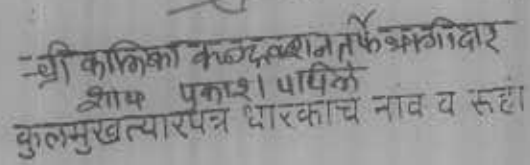 श्री कालिका कन्स्ट्रक्शन तर्फे भागीदार
प्रकाश
कुलमुखत्यारपत्र धारकाचे नाव व सही